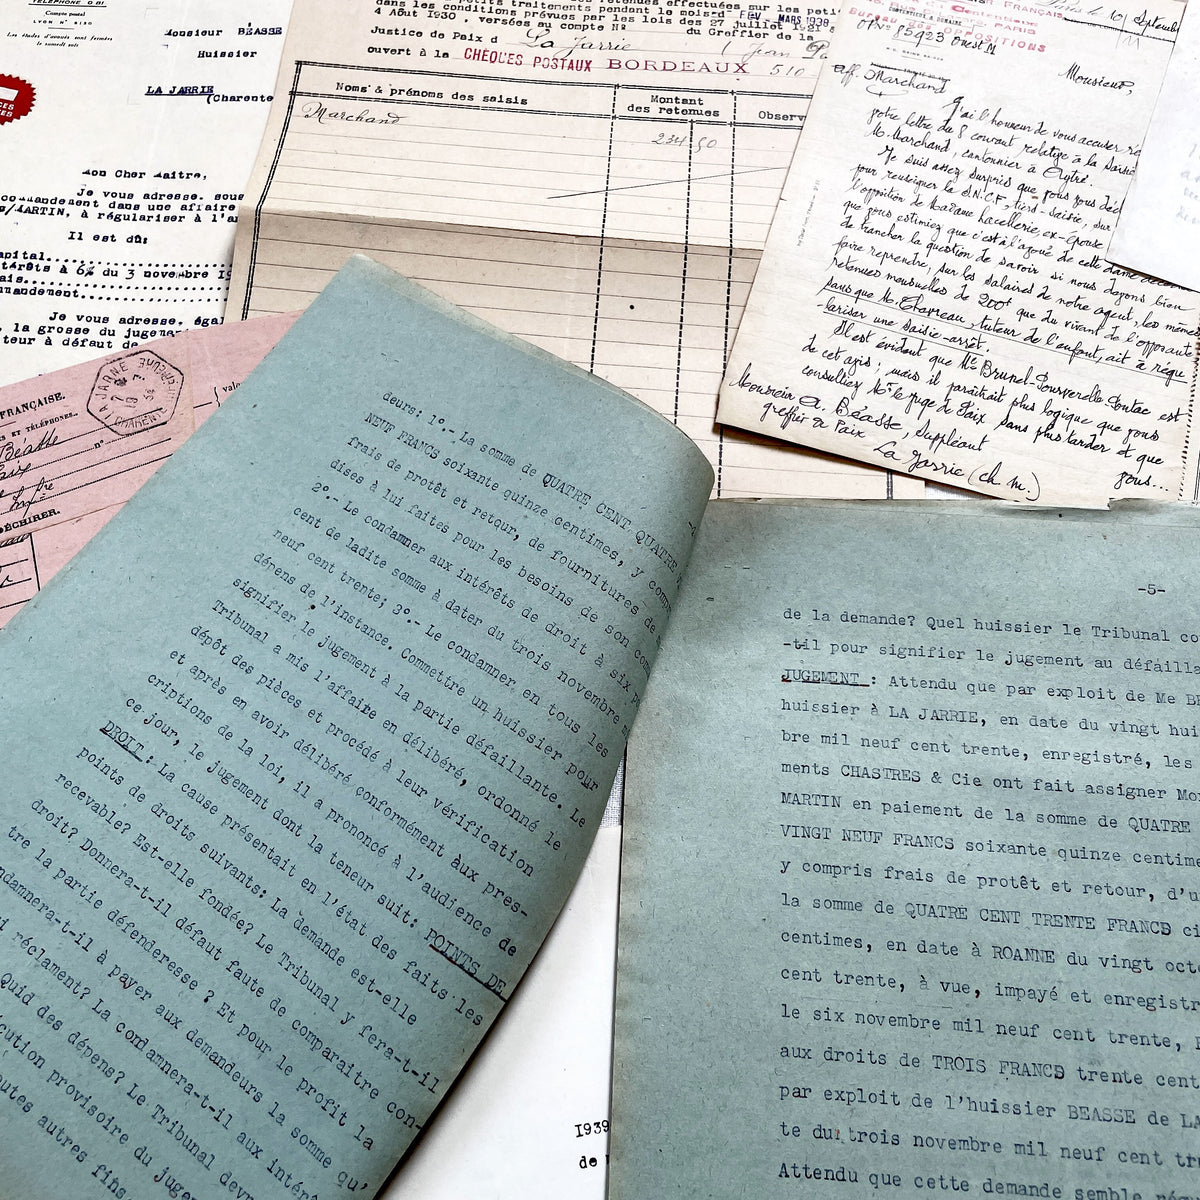 TÉLÉPHONE 0.81
Compte postal
LYON N°
Les études d'avoués sont fermées
le samedi soir
Monsieur BÉASSE
Huissier
LA JARRIE
(Charente
Mon Cher Maître,
Je vous adresse, sous
commandement dans une affaire
/MARTIN, à régulariser à l'a
Il est dû:
apital
térêts à 6% du 3 novembre 19
ais
mmandement
Je vous adresse, égal
la grosse du jugement
teur à défaut de
petits traitements pendant le mois d FÉV - MARS 1938
dans les conditions prévues par les lois des 27 juillet 1921 &
4 Août 1930, versées au compte N° du Greffier de la
Justice de Paix d La Jarrie Jean
ouvert à la CHÈQUES POSTAUX BORDEAUX 510
Noms & prénoms des saisis
Montant
des retenues
Observ
Marchand
234 50
FRANÇAIS
Bureau des OPPOSITIONS
10 Septemb
N° 85923 Ouest M
aff. Marchand
Monsieur,
J'ai l'honneur de vous accuser ré
votre lettre du 8 courant relative à la saisie
M. Marchand, cantonnier à Aytré.
Je suis assez surpris que vous vous déc
pour renseigner la S.N.C.F., tiers-saisie, sur
l'opposition de Madame Lacellerie, ex-épouse
que vous estimiez que c'est à l'avoué de cette dame
de trancher la question de savoir si nous devons bien
faire reprendre, sur les salaires de notre agent, les mêmes
retenues mensuelles de 200f que du vivant de l'opposante
sans que M. Chavreau, tuteur de l'enfant, ait à régu
-lariser une saisie-arrêt.
Il est évident que Me Brunel-Pourverelle Pontac est
de cet avis; mais il paraîtrait plus logique que vous
consultiez Mr le juge de Paix sans plus tarder et que
vous...
Monsieur A. Béasse, suppléant
greffier de Paix
La Jarrie (ch. m.)
FRANÇAISE.
ET TÉLÉPHONES.
Béasse
n°
DÉCHIRER.
LA JARRIE
CHARENTE
deurs: 1°.- La somme de QUATRE CENT QUATRE V
NEUF FRANCS soixante quinze centimes, y comp
frais de protêt et retour, de fournitures de
dises à lui faites pour les besoins de son com
2°.- Le condamner aux intérêts de droit à six p
cent de ladite somme à dater du trois novembre m
neuf cent trente; 3°.- Le condamner en tous les
dépens de l'instance. Commettre un huissier pour
signifier le jugement à la partie défaillante. Le
Tribunal a mis l'affaite en délibéré, ordonné le
dépôt des pièces et procédé à leur vérification
et après en avoir délibéré conformément aux pres-
criptions de la loi, il a prononcé à l'audience de
ce jour, le jugement dont la teneur suit: POINTS DE
DROIT.: La cause présentait en l'état des faits les
points de droits suivants: La demande est-elle
recevable? Est-elle fondée? Le Tribunal y fera-t-il
droit? Donnera-t-il défaut faute de comparaitre con-
tre la partie défenderesse ? Et pour le profit la
ndamnera-t-il à payer aux demandeurs la somme qu'
i réclament? La condamnera-t-il aux intérê
Quid des dépens? Le Tribunal devra
cution provisoire du juge
outes autres fins
-5-
de la demande? Quel huissier le Tribunal co
-til pour signifier le jugement au défailla
JUGEMENT : Attendu que par exploit de Me BE
huissier à LA JARRIE, en date du vingt hui
bre mil neuf cent trente, enregistré, les
ments CHASTRES & Cie ont fait assigner Mo
MARTIN en paiement de la somme de QUATRE
VINGT NEUF FRANCS soixante quinze centime
y compris frais de protêt et retour, d'u
la somme de QUATRE CENT TRENTE FRANCS ci
centimes, en date à ROANNE du vingt octo
cent trente, à vue, impayé et enregistr
le six novembre mil neuf cent trente,
aux droits de TROIS FRANCS trente cent
par exploit de l'huissier BEASSE de LA
te du trois novembre mil neuf cent tr
Attendu que cette demande semble
1939
de